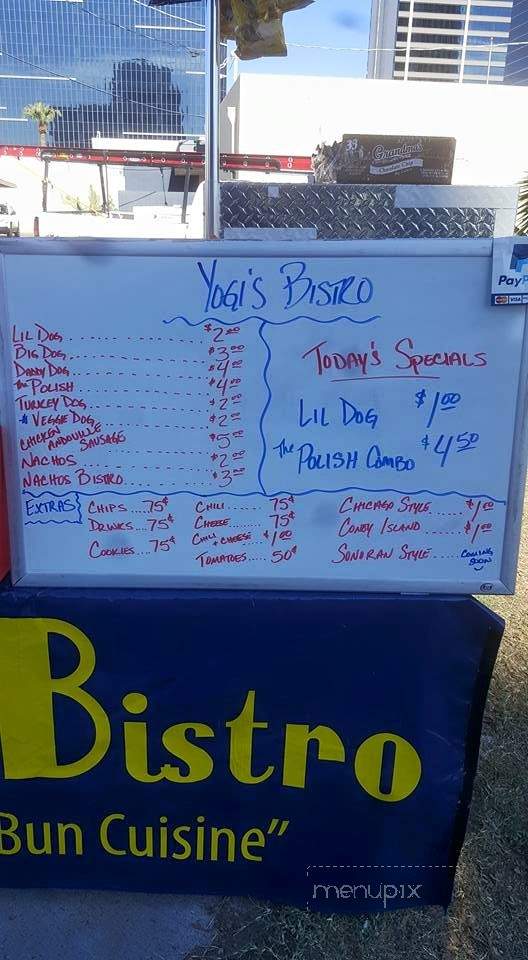 33
Grandma's
Chocolate Chip
PayP
VISA
YOGI'S BISTRO
LIL DOG .......... $2.00
BIG DOG .......... $3.00
DADDY DOG .......... $4.00
THE POLISH .......... $4.00
TURKEY DOG .......... $2.00
* VEGGIE DOG .......... $2.00
CHICKEN ANDOUILLE SAUSAGE $5.00
NACHOS .......... $2.00
NACHOS BISTRO .......... $3.00
TODAY'S SPECIALS
LIL DOG $1.00
THE POLISH COMBO $4.50
EXTRAS
CHIPS ....75¢
DRINKS ....75¢
COOKIES ....75¢
CHILI ...... 75¢
CHEESE ...... 75¢
CHILI + CHEESE $1.00
TOMATOES .... 50¢
CHICAGO STYLE ..... $1.00
CONEY ISLAND ..... $1.00
SONORAN STYLE ..... COMING SOON
Bistro
Bun Cuisine"
menupix